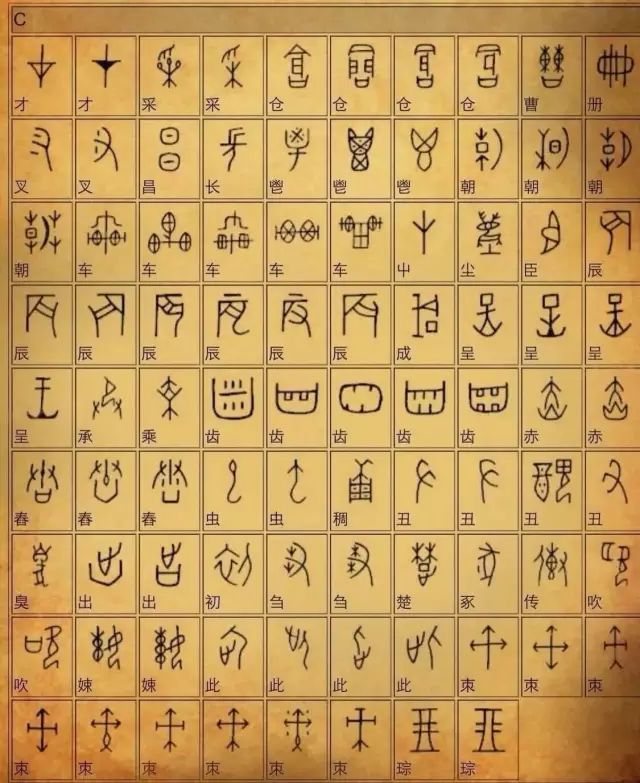 C
才 才 采 采 仓 仓 仓 仓 曹 册
叉 叉 昌 长 鬯 鬯 鬯 朝 朝 朝
朝 车 车 车 车 车 屮 尘 臣 辰
辰 辰 辰 辰 辰 辰 成 呈 呈 呈
呈 承 乘 齿 齿 齿 齿 齿 赤 赤
舂 舂 舂 虫 虫 稠 丑 丑 丑 丑
臭 出 出 初 刍 刍 楚 豖 传 吹
吹 娕 娕 此 此 此 此 朿 朿 朿
朿 朿 朿 朿 朿 朿 琮 琮